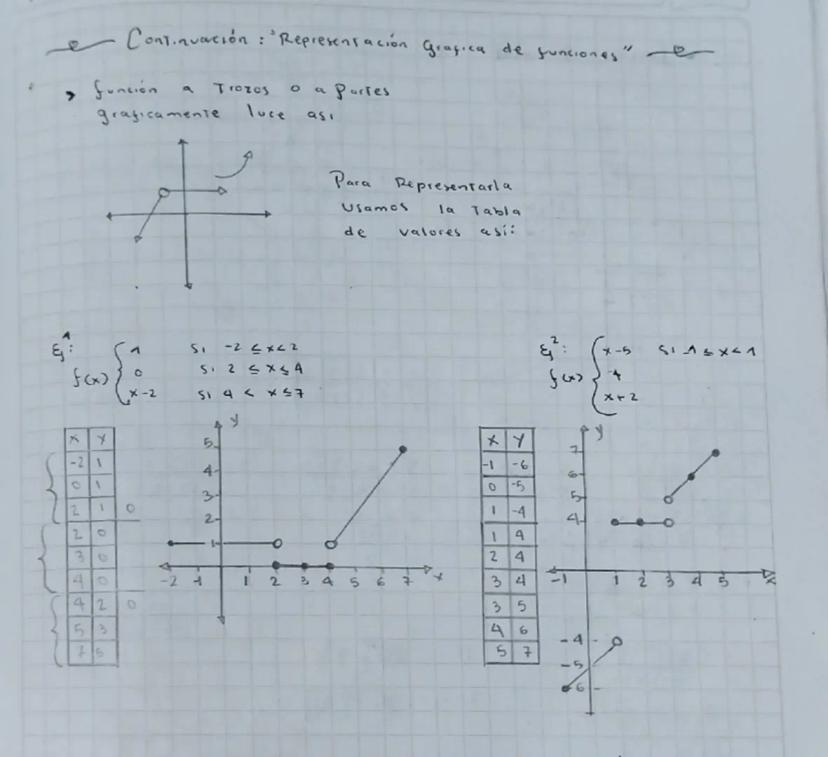 Continuación: "Representación Grafica de funciones"
función a Trozos o a Partes
graficamente luce asi
Para Representarla
Usamos la Tabla
de valores así:
Ej 1:
f(x) { 1 si -2 ≤ x < 2
0 si 2 ≤ x ≤ 4
x-2 si 4 < x ≤ 7
Ej 2:
f(x) { x-5 si -1 ≤ x < 1
4
x+2
x y
-2 1
0 1
2 1 0
2 0
3 0
4 0
4 2 0
5 3
7 5
y
5
4
3
2
1
-2 -1 1 2 3 4 5 6 7 x
x y
-1 -6
0 -5
1 -4
1 4
2 4
3 4
3 5
4 6
5 7
y
7
6
5
4
-1 1 2 3 4 5 x
-4
-5
-6